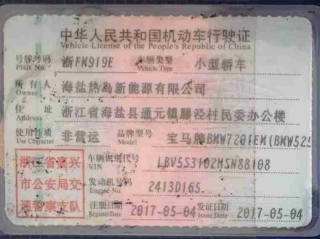 中华人民共和国机动车行驶证
Vehicle License of the People's Republic of China
号牌号码 浙FN919E 车辆类型 小型轿车
Plate No. Vehicle Type
海盐热岛新能源有限公司
浙江省海盐县通元镇 村民委办公楼
使用性质 非营运 品牌型号 宝马牌BMW7201EM(BMW525
Use Character Model
浙江省嘉兴
市公安局交
通警察支队
车辆识别代号 LBV5S3102HSN88108
VIN
发动机号码 2413D165
Engine No.
注册日期 2017-05-04 发证日期 2017-05-04
Register Date Issue Date